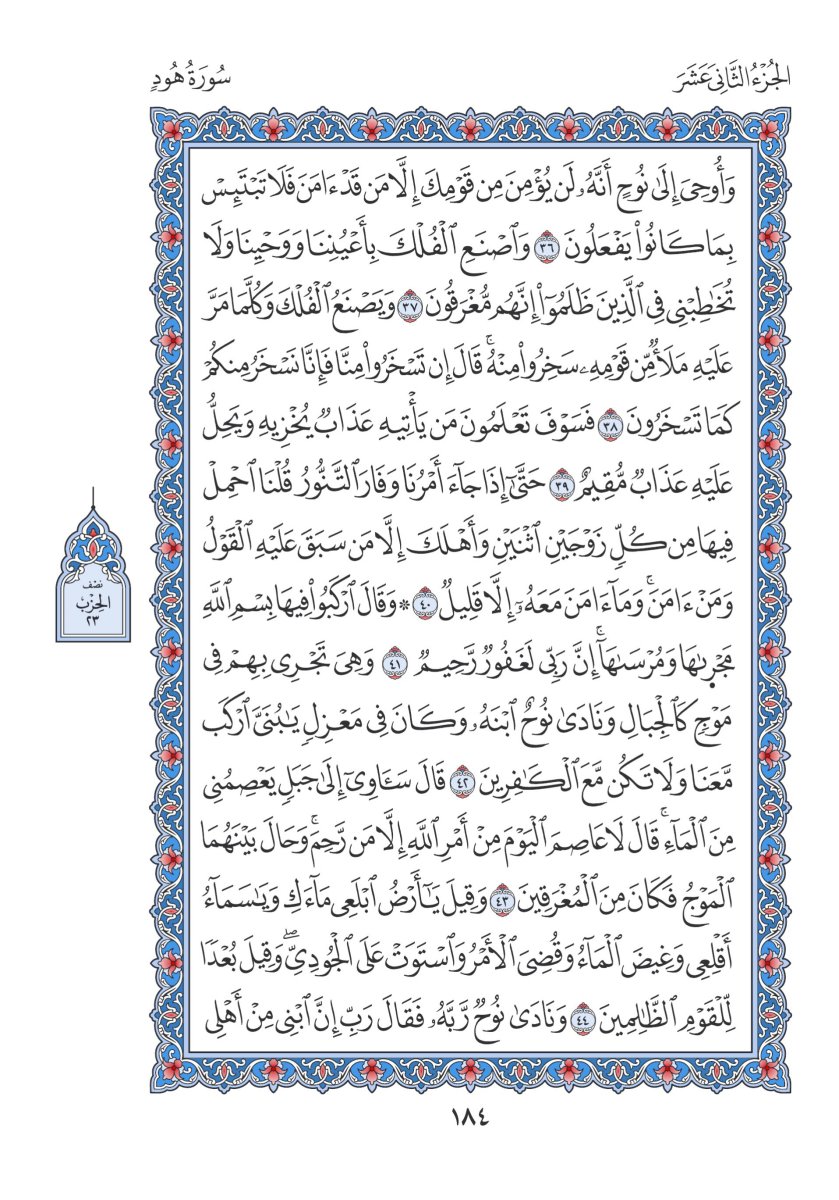 الجُزْءُ الثَّانِي عَشَرَ
سُورَةُ هُودٍ
وَأُوحِيَ إِلَىٰ نُوحٍ أَنَّهُۥ لَن يُؤْمِنَ مِن قَوْمِكَ إِلَّا مَن قَدْ ءَامَنَ فَلَا تَبْتَئِسْ
بِمَا كَانُوا۟ يَفْعَلُونَ ٣٦ وَٱصْنَعِ ٱلْفُلْكَ بِأَعْيُنِنَا وَوَحْيِنَا وَلَا
تُخَـٰطِبْنِى فِى ٱلَّذِينَ ظَلَمُوٓا۟ إِنَّهُم مُّغْرَقُونَ ٣٧ وَيَصْنَعُ ٱلْفُلْكَ وَكُلَّمَا مَرَّ
عَلَيْهِ مَلَأٌ مِّن قَوْمِهِۦ سَخِرُوا۟ مِنْهُ ۚ قَالَ إِن تَسْخَرُوا۟ مِنَّا فَإِنَّا نَسْخَرُ مِنكُمْ
كَمَا تَسْخَرُونَ ٣٨ فَسَوْفَ تَعْلَمُونَ مَن يَأْتِيهِ عَذَابٌ يُخْزِيهِ وَيَحِلُّ
عَلَيْهِ عَذَابٌ مُّقِيمٌ ٣٩ حَتَّىٰٓ إِذَا جَآءَ أَمْرُنَا وَفَارَ ٱلتَّنُّورُ قُلْنَا ٱحْمِلْ
فِيهَا مِن كُلٍّ زَوْجَيْنِ ٱثْنَيْنِ وَأَهْلَكَ إِلَّا مَن سَبَقَ عَلَيْهِ ٱلْقَوْلُ
وَمَنْ ءَامَنَ ۚ وَمَآ ءَامَنَ مَعَهُۥٓ إِلَّا قَلِيلٌ ٤٠ * وَقَالَ ٱرْكَبُوا۟ فِيهَا بِسْمِ ٱللَّهِ
مَجْر۪ىٰهَا وَمُرْسَىٰهَآ ۚ إِنَّ رَبِّى لَغَفُورٌ رَّحِيمٌ ٤١ وَهِىَ تَجْرِى بِهِمْ فِى
مَوْجٍ كَٱلْجِبَالِ وَنَادَىٰ نُوحٌ ٱبْنَهُۥ وَكَانَ فِى مَعْزِلٍ يَـٰبُنَىَّ ٱرْكَب
مَّعَنَا وَلَا تَكُن مَّعَ ٱلْكَـٰفِرِينَ ٤٢ قَالَ سَـَٔاوِىٓ إِلَىٰ جَبَلٍ يَعْصِمُنِى
مِنَ ٱلْمَآءِ ۚ قَالَ لَا عَاصِمَ ٱلْيَوْمَ مِنْ أَمْرِ ٱللَّهِ إِلَّا مَن رَّحِمَ ۚ وَحَالَ بَيْنَهُمَا
ٱلْمَوْجُ فَكَانَ مِنَ ٱلْمُغْرَقِينَ ٤٣ وَقِيلَ يَـٰٓأَرْضُ ٱبْلَعِى مَآءَكِ وَيَـٰسَمَآءُ
أَقْلِعِى وَغِيضَ ٱلْمَآءُ وَقُضِىَ ٱلْأَمْرُ وَٱسْتَوَتْ عَلَى ٱلْجُودِىِّ ۖ وَقِيلَ بُعْدًا
لِّلْقَوْمِ ٱلظَّـٰلِمِينَ ٤٤ وَنَادَىٰ نُوحٌ رَّبَّهُۥ فَقَالَ رَبِّ إِنَّ ٱبْنِى مِنْ أَهْلِى
نصف
الحِزْبُ
٢٣
١٨٤